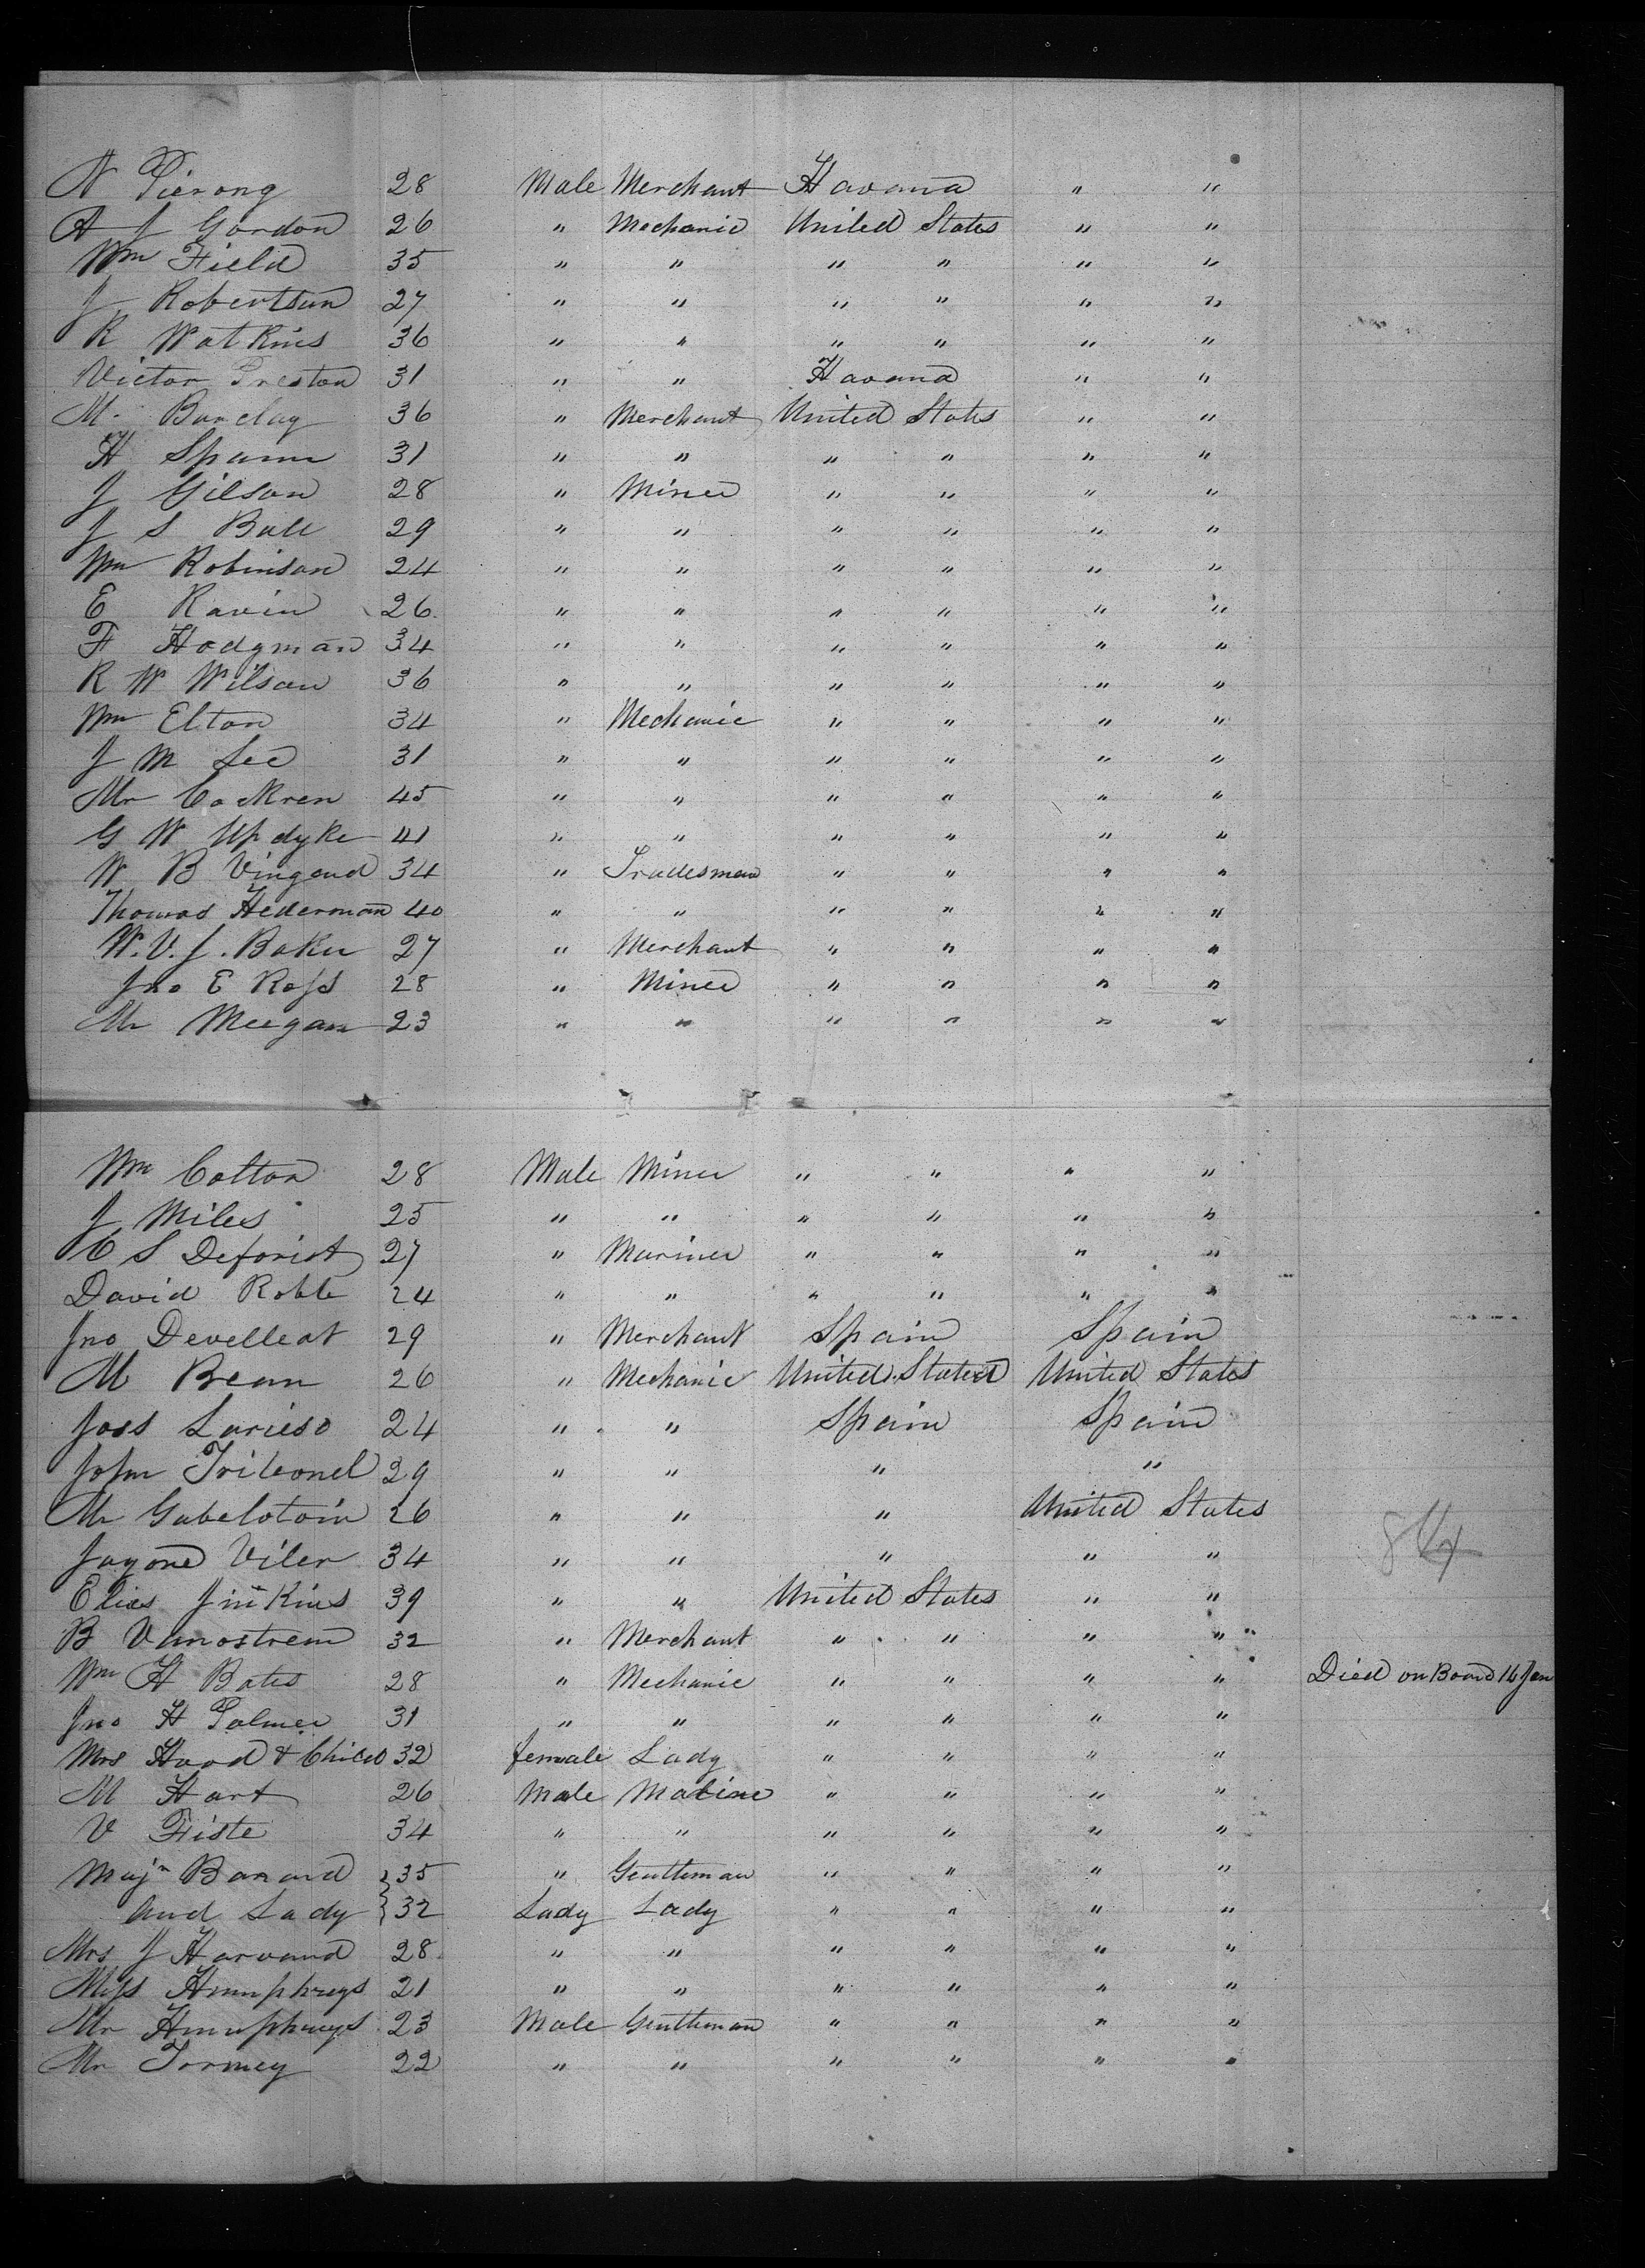 N Pierong 28 Male Merchant Havana " "
A J Gordon 26 " Mechanic United States " "
Wm Field 35 " " " " " "
J Robertson 27 " " " " " "
R Watkins 36 " " " " " "
Victor Preston 31 " " Havana " "
M. Barclay 36 " Merchant United States " "
H Spann 31 " " " " " "
J Gilson 28 " Miner " " " "
J S Ball 29 " " " " " "
Wm Robinson 24 " " " " " "
E Ravin 26 " " " " " "
F Hodgman 34 " " " " " "
R W Wilson 36 " " " " " "
Wm Elton 34 " Mechanic " " " "
J M Lee 31 " " " " " "
Mr Cockren 45 " " " " " "
G W Updyke 41 " " " " " "
W B Vingend 34 " Tradesman " " " "
Thomas Hederman 40 " " " " " "
W. V. J. Baker 27 " Merchant " " " "
Jno E Ross 28 " Miner " " " "
Mr Meegan 23 " " " " " "
Wm Cotton 28 Male Miner " " " "
J Miles 25 " " " " " "
C S Deforist 27 " Mariner " " " "
David Roble 24 " " " " " "
Jno Develleat 29 " Merchant Spain Spain
M Bean 26 " Mechanic United States United States
Joss Larieso 24 " " Spain Spain
John Trileonel 29 " " " "
Mr Gabelotoin 26 " " " United States
Jayone Viler 34 " " " " "
Elias Jinkins 39 " " United States " "
B Vanostrem 32 " Merchant " " " "
Wm H Bates 28 " Mechanic " " " " Died on Board 16 Jan
Jno H Palmer 31 " " " " " "
Mrs Hood & Child 32 female Lady " " " "
M Hart 26 Male " " " "
V Fiste 34 " " " " " "
Majr Banard 35 " Gentleman " " " "
and Lady 32 Lady Lady " " " "
Mrs J Harvand 28 " " " " " "
Miss Humphreys 21 " " " " " "
Mr Humphreys 23 Male Gentleman " " " "
Mr Tormey 22 " " " " " "